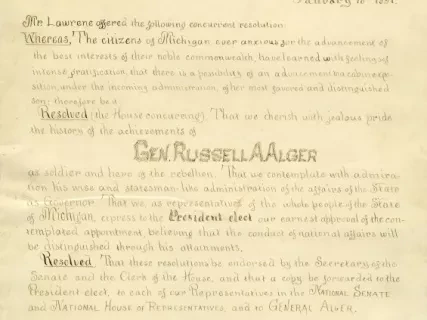 January 16 1897.
Mr. Lawrence offered the following concurrent resolution
Whereas, The citizens of Michigan ever anxious for the advancement of
the best interests of their noble commonwealth, have learned with feelings of
intense gratification, that there is a possibility of an advancement to a cabinet po-
sition, under the incoming administration, of her most favored and distinguished
son; therefore be it
Resolved (the House concurring), That we cherish with jealous pride
the history of the achievements of
GEN. RUSSELL A. ALGER
as soldier and hero of the rebellion. That we contemplate with admira-
tion his wise and statesman-like administration of the affairs of the State
as Governor. That we, as representatives of the whole people of the State
of Michigan, express to the President elect our earnest approval of the con-
templated appointment believing that the conduct of national affairs will
be distinguished through his attainments.
Resolved, That these resolutions be endorsed by the Secretary of the
Senate and the Clerk of the House, and that a copy be forwarded to the
President elect, to each of our Representatives in the NATIONAL SENATE
and NATIONAL HOUSE OF REPRESENTATIVES, and to GENERAL ALGER.